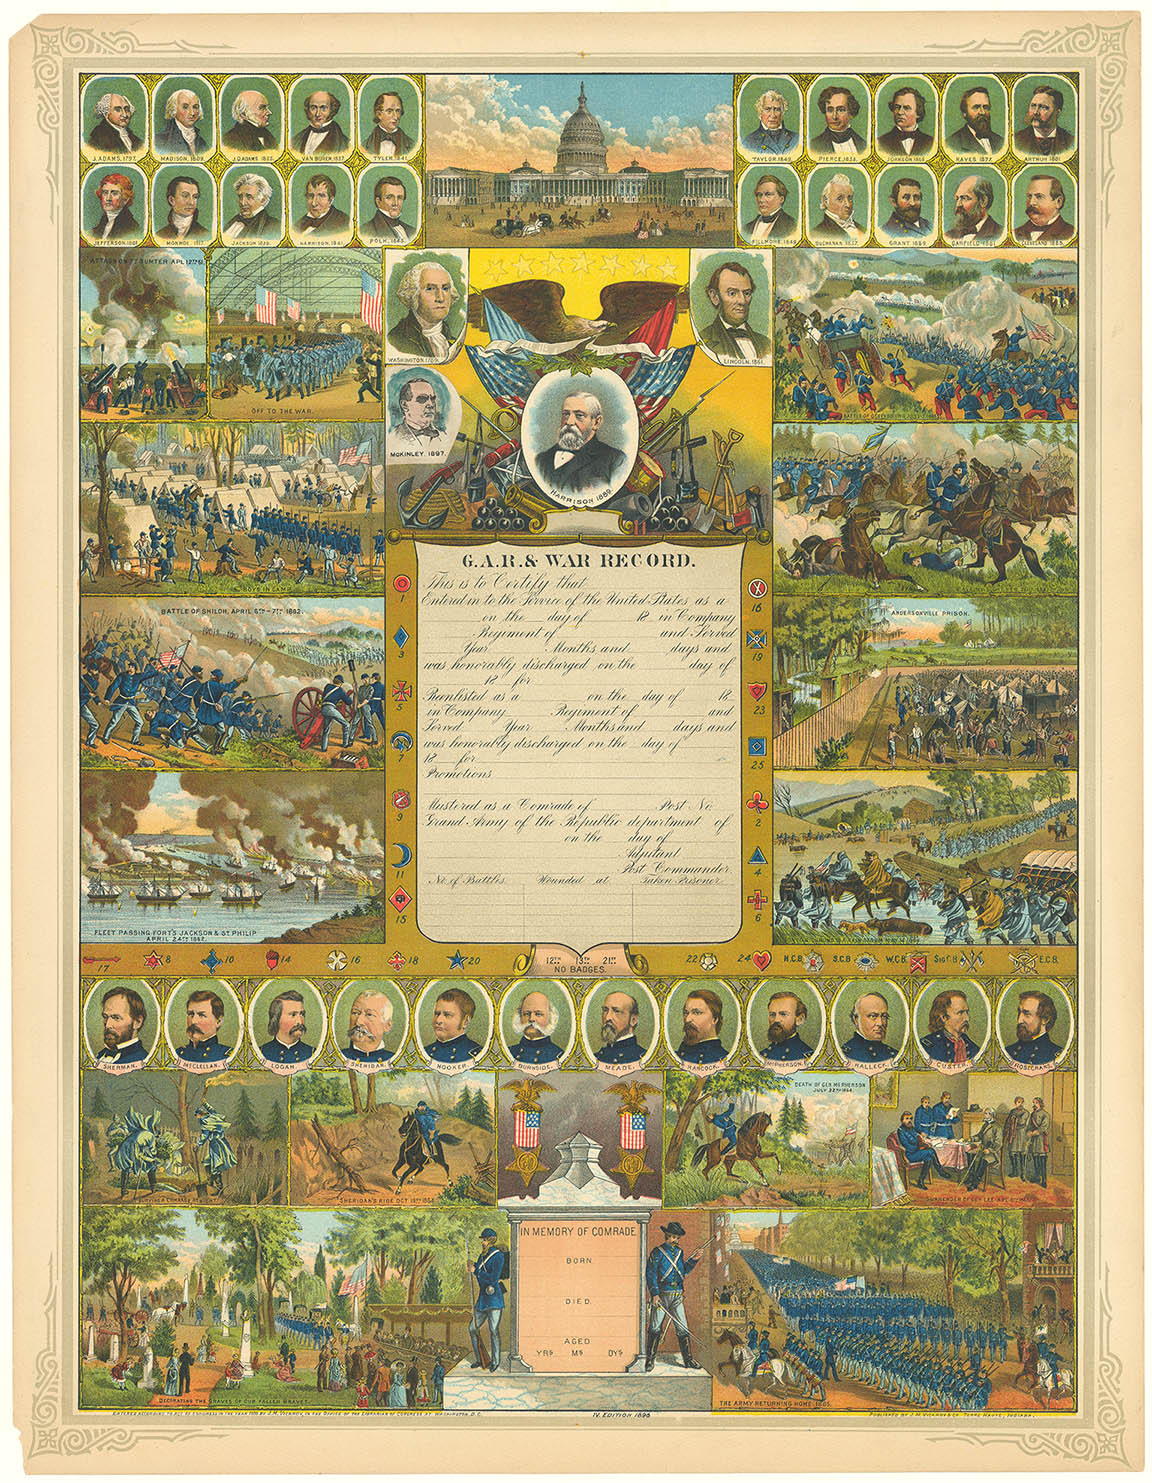 J. ADAMS, 1797.
MADISON, 1809.
J.Q. ADAMS 1825.
VAN BUREN, 1837.
TYLER, 1841.
JEFFERSON, 1801
MONROE, 1817.
JACKSON 1829.
HARRISON, 1841.
POLK, 1845.
TAYLOR, 1849.
PIERCE, 1853.
JOHNSON 1865
HAYES 1877.
ARTHUR 1881
FILLMORE, 1849
BUCHANAN, 1857.
GRANT 1869
GARFIELD 1881
CLEVELAND 1885.
ATTACK ON FT SUMTER APL 12TH 61.
OFF TO THE WAR.
WASHINGTON, 1789.
LINCOLN, 1861.
McKINLEY. 1897.
HARRISON 1889.
BATTLE OF GETTYSBURG
BOYS IN CAMP
BATTLE OF SHILOH, APRIL 6TH - 7TH 1862.
ANDERSONVILLE PRISON.
FLEET PASSING FORTS JACKSON & ST. PHILIP
APRIL 24TH 1862.
G.A.R. & WAR RECORD.
This is to Certify that
Entered in to the Service of the United States as a
on the day of 18 in Company
Regiment of and Served
Year Months and days and
was honorably discharged on the day of
18 for
Reenlisted as a on the day of 18
in Company Regiment of and
Served Year Months and days and
was honorably discharged on the day of
18 for
Promotions
Mustered as a Comrade of Post No
Grand Army of the Republic department of
on the day of
Adjutant
Post Commander
No of Battles Wounded at Taken Prisoner
1
3
5
7
9
11
15
16
19
23
25
2
4
6
17
8
10
14
16
18
20
12TH 13TH 21ST
NO BADGES.
22
24
H.C.B
S.C.B
W.C.B
SIG C.B
E.C.B.
SHERMAN.
McCLELLAN.
LOGAN.
SHERIDAN.
HOOKER
BURNSIDE.
MEADE.
HANCOCK.
McPHERSON.
HALLECK.
CUSTER.
ROSECRANS.
SHERIDAN'S RIDE OCT 19TH 1864
DEATH OF GEN. McPHERSON
JULY 22ND 1864.
SURRENDER OF GEN LEE
IN MEMORY OF COMRADE
BORN
DIED.
AGED
YRS MS DYS
DECORATING THE GRAVES OF OUR FALLEN BRAVES.
THE ARMY RETURNING HOME, 1865.
ENTERED ACCORDING TO ACT OF CONGRESS IN THE YEAR 1890 BY J.M. VICKROY, IN THE OFFICE OF THE LIBRARIAN OF CONGRESS AT WASHINGTON, D.C.
IV. EDITION 1896
PUBLISHED BY J.M. VICKROY & CO. TERRE HAUTE, INDIANA.